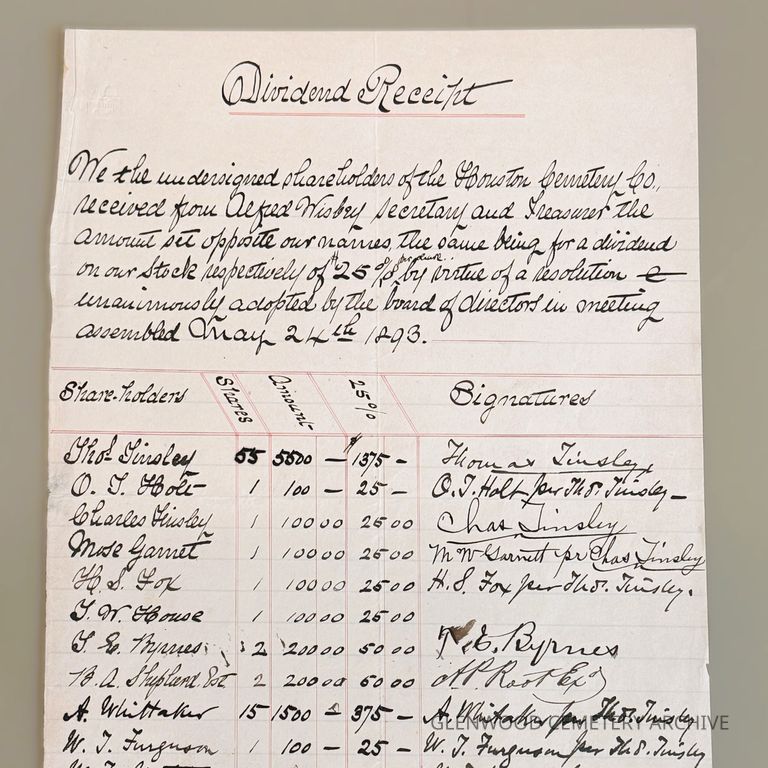 Dividend Receipt
We the undersigned shareholders of the Houston Cemetery Co.,
received from Alfred Wisbey secretary and Treasurer the
amount set opposite our names, the same being for a dividend
on our Stock respectively of $25 % by virtue of a resolution
unanimously adopted by the board of directors in meeting
assembled May 24th 1893.
Share-holders Shares Amount 25% Signatures
Thos. Tinsley 55 5500 — $1375 — Thomas Tinsley
O. T. Holt 1 100 — 25 — O. T. Holt per Thos. Tinsley —
Charles Tinsley 1 100 00 25 00 Chas Tinsley
Mose Garnet 1 100 00 25 00 M W Garnett pr Chas Tinsley
H. S. Fox 1 100 00 25 00 H. S. Fox per Thos. Tinsley.
T. W. House 1 100 00 25 00
T. E. Byrnes 2 200 00 50 00 T. E. Byrnes
B. A. Shepherd Est 2 200 00 50 00 A P Root Exr
A. Whittaker 15 1500 — 375 — A. Whitaker per Thos. Tinsley
W. T. Furguson 1 100 — 25 — W. T. Furguson per Thos. Tinsley
GLENWOOD CEMETERY ARCHIVE